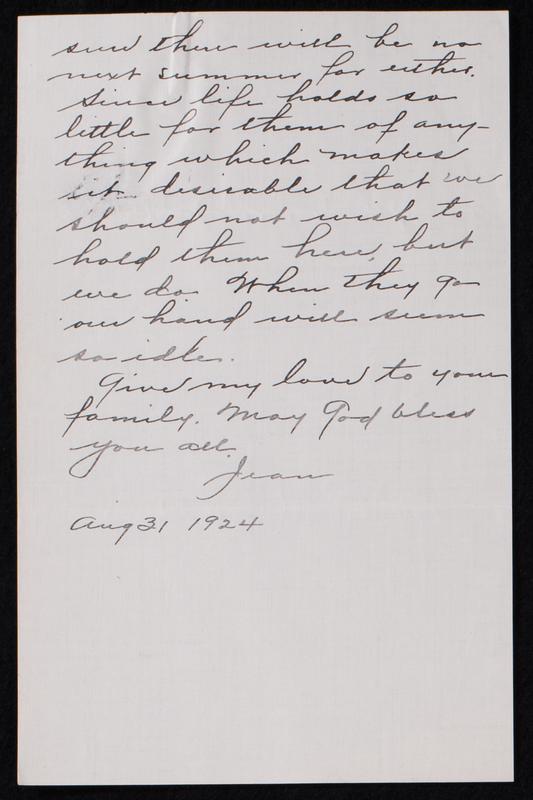 sure there will be no
next summer for either.
Since life holds so
little for them of any-
thing which makes
it desirable that we
should not wish to
hold them here, but
we do. When they go
our hand will seem
so idle.
Give my love to your
family. May God bless
you all.
Jean
Aug 31 1924